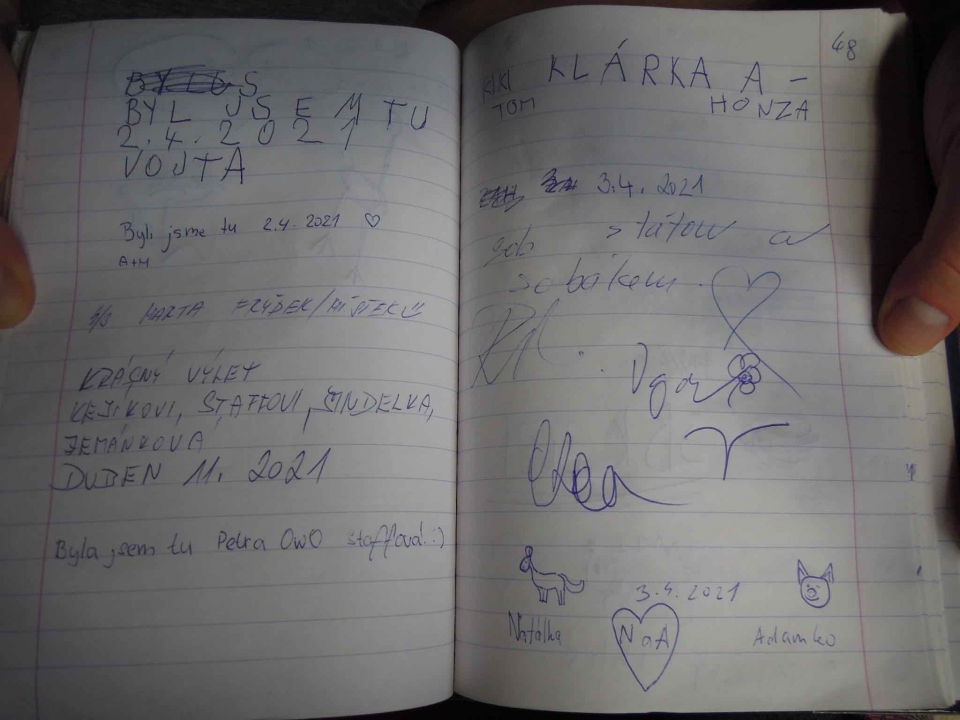 BYL JSEM TU
2.4.2021
VOJTA
Byli jsme tu 2.4.2021 ♡
A+M
MARTA FRÝDEK/MÍSTEK
KRÁSNÝ VÝLET
KEJÍKOVI, STAFFOVI, ŠINDELKA,
ZEMÁNKOVÁ
DUBEN 11. 2021
Byla jsem tu Petra OwO Staffová! :)
48
KLÁRKA A -
TOM HONZA
3.4.2021
s tátou a
sobákem.
3.4.2021
Natálka NaA Adamko